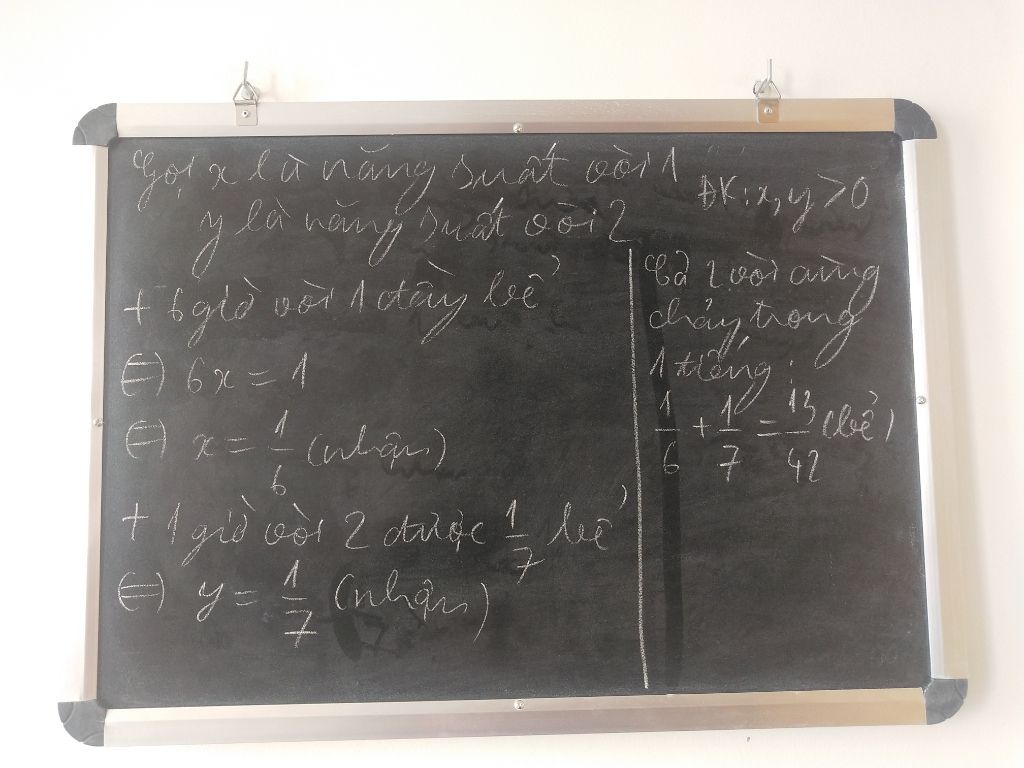 Gọi x là năng suất vòi 1
y là năng suất vòi 2
ĐK: x, y > 0
+ 6 giờ vòi 1 đầy bể
⇔ 6x = 1
⇔ x = 1/6 (nhận)
+ 1 giờ vòi 2 được 1/7 bể
⇔ y = 1/7 (nhận)
Cả 2 vòi cùng
chảy trong
1 tiếng:
1/6 + 1/7 = 13/42 (bể)